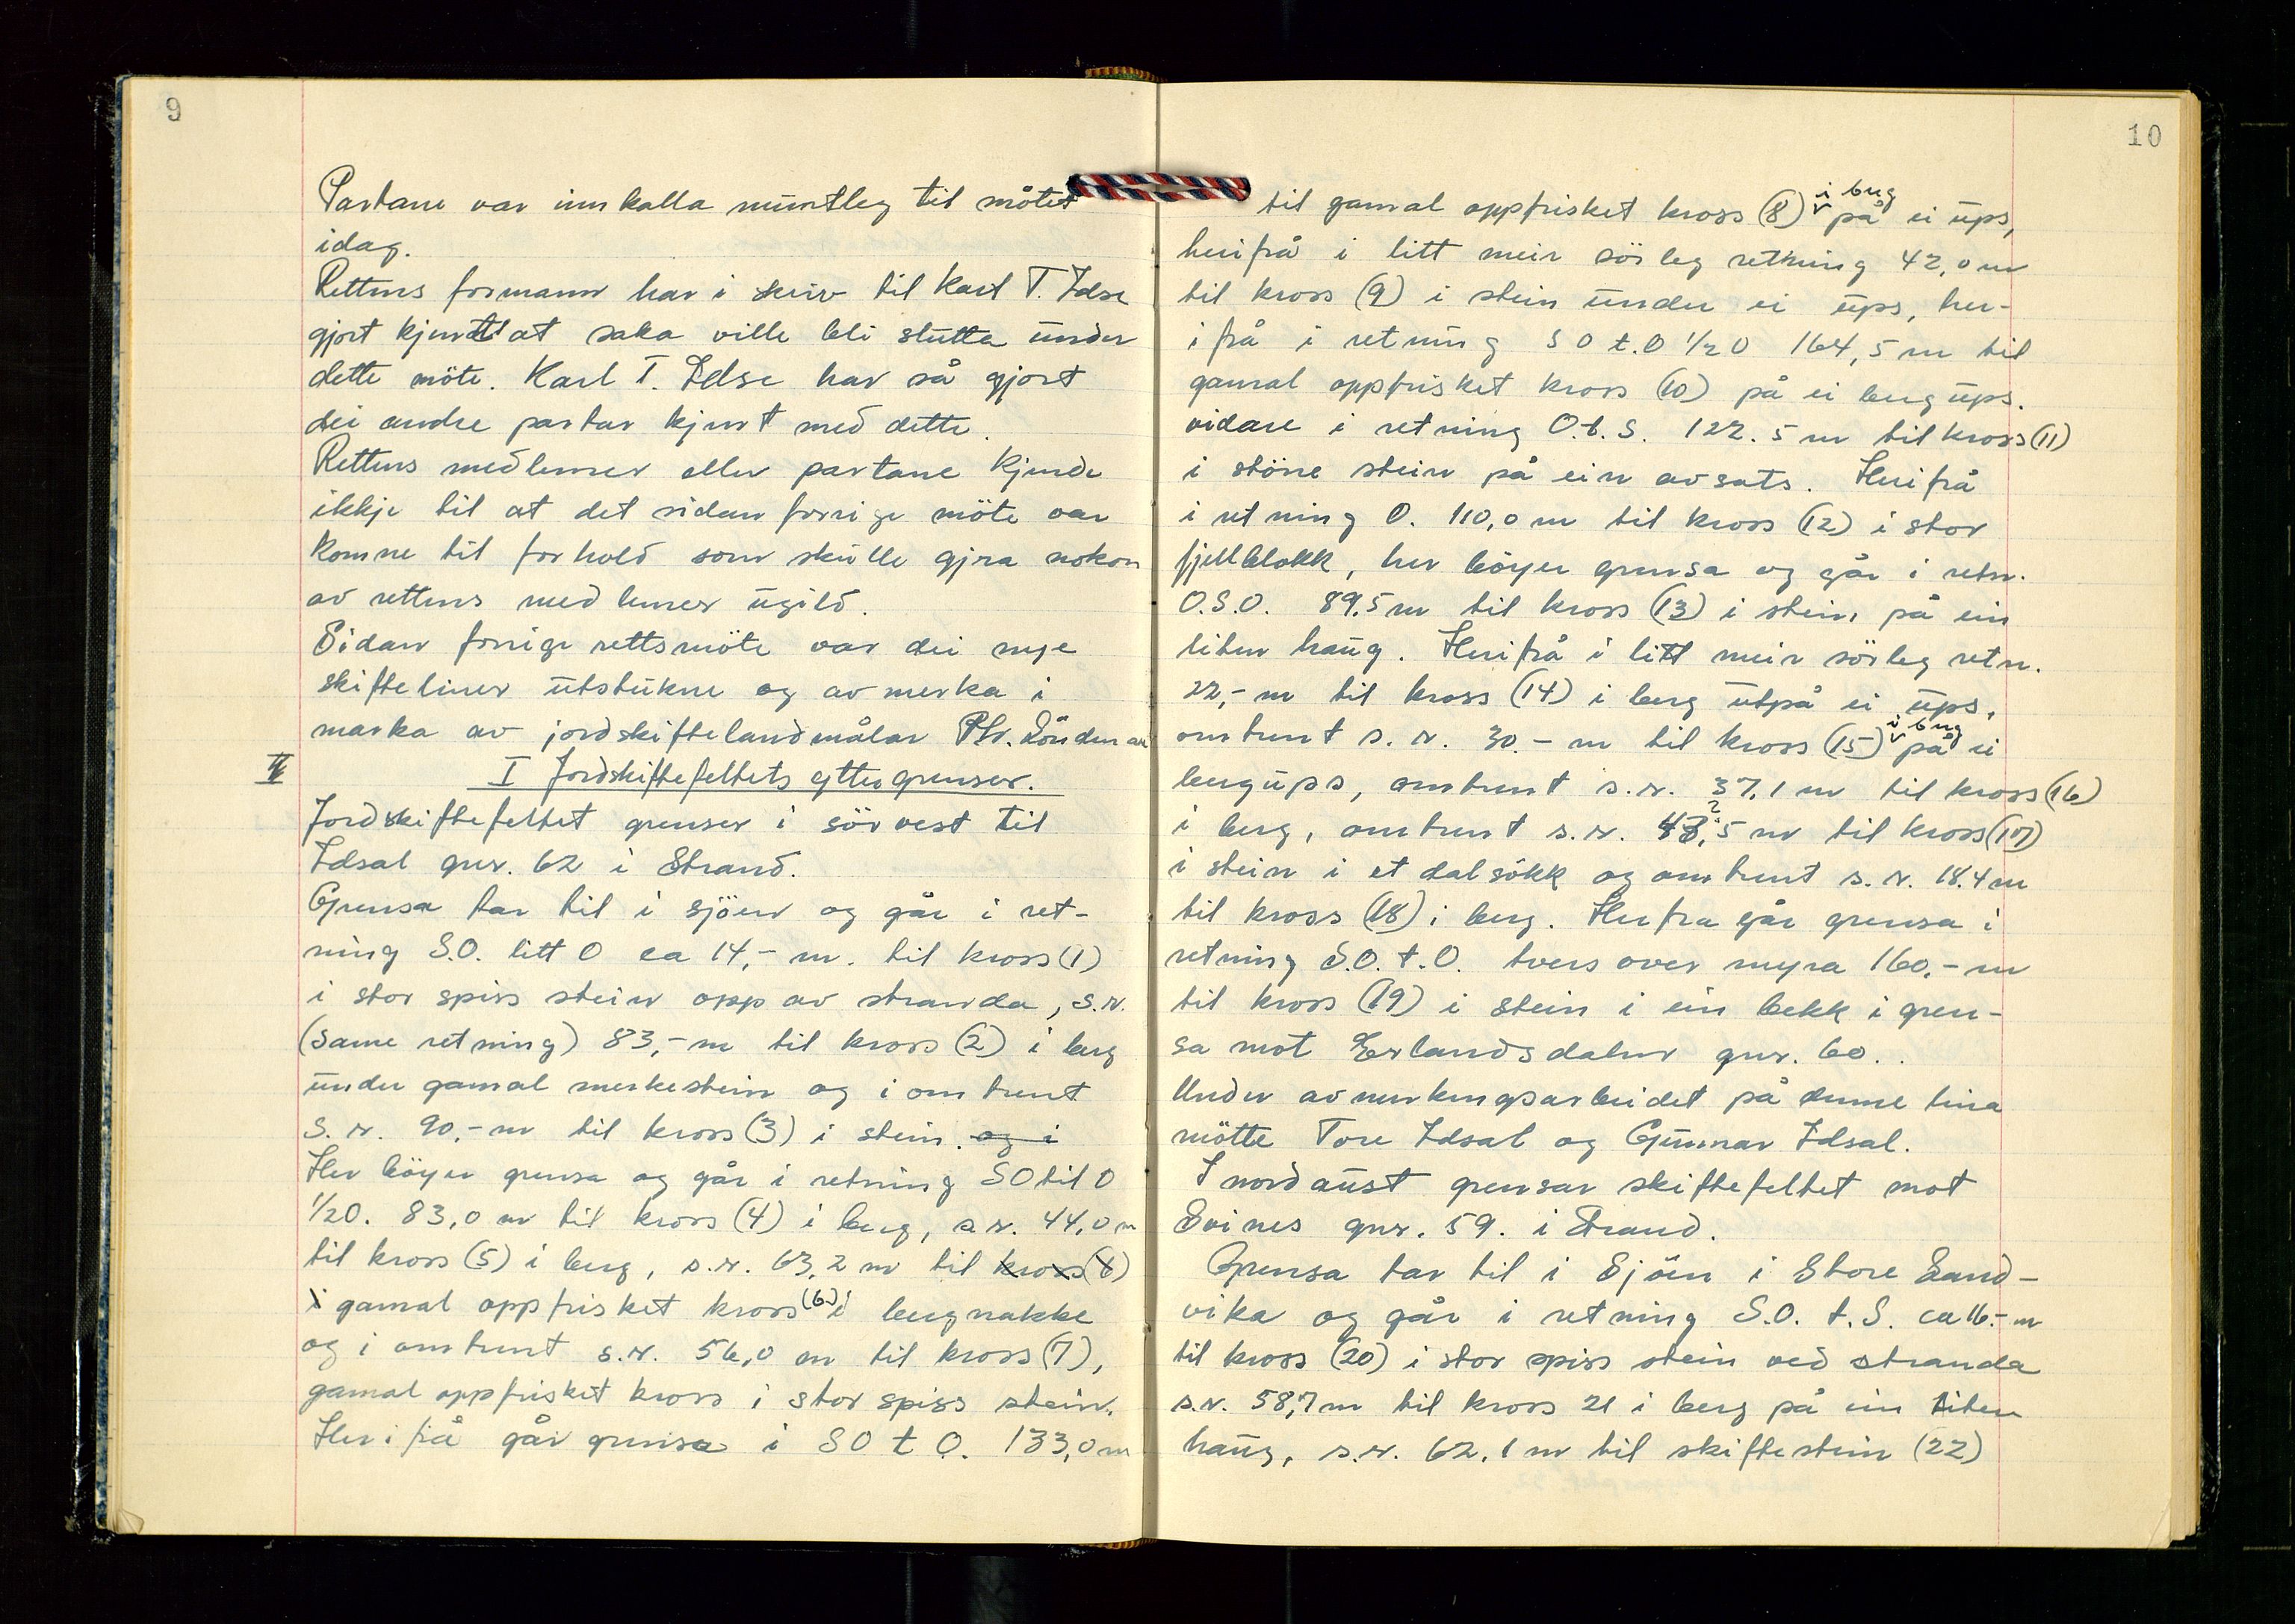 9
Partane var innkalla muntleg til møtet
idag.
Rettens formann har i skriv til Karl T. Idse
gjort kjendt at saka ville bli slutta under
dette möte. Karl T. Idse har så gjort
dei andre partar kjent med dette.
Rettens medlemer eller partane kjende
ikkje til at det sidan forrige möte var
komne til forhold som skulle gjra nokon
av rettens medlemer ugild.
Sidan forrige rettsmöte var dei nye
skifteliner utstukne og avmerka i
marka av jordskiftelandmålar
I Jordskiftefeltets yttergrenser.
Jordskiftefeltet grenser i sörvest til
Idsal gnr. 62 i Strand.
Grensa tar til i sjöen og går i ret-
ning S.O. litt O ca 14,- m. til kross (1)
i stor spiss stein opp av stranda, s.r.
(same retning) 83,- m til kross (2) i berg
under gamal merkestein og i omtrent
s.r. 90,- m til kross (3) i stein. og i
Her böyer grensa og går i retning SO til O
1/2O. 83,0 m til kross (4) i berg, s.r. 44,0 m
til kross (5) i berg, s.r. 63,2 m til kross (6)
i gamal oppfrisket kross (6) i bergnakke
og i omtrent s.r. 56,0 m til kross (7),
gamal oppfrisket kross i stor spiss stein.
Herifrå går grensa i SO t O. 133,0 m
10
til gamal oppfrisket kross (8) i berg på ei ups,
herifrå i litt meir sörleg retning 42,0 m
til kross (9) i stein under ei ups, her-
ifrå i retning SO t.O 1/2 O 164,5 m til
gamal oppfrisket kross (10) på ei berg ups.
vidare i retning O.t.S. 122.5 m til kross (11)
i störe stein på ein avsats. Herifrå
i retning O. 110,0 m til kross (12) i stor
fjellblokk, her böyer grensa og går i retn.
O.S.O. 89,5 m til kross (13) i stein på ein
liten haug. Herifrå i litt meir sörleg retn.
22,- m til kross (14) i berg utpå ei ups,
omtrent s.r. 30.- m til kross (15) i berg på ei
bergups, omtrent s.r. 37,1 m til kross (16)
i berg, omtrent s.r. 42,5 m til kross (17)
i stein i et dalsökk og omtrent s.r. 18.4 m
til kross (18) i berg. Herfra går grensa i
retning S.O. t. O. tvers over myra 160,- m
til kross (19) i stein i ein bekk i gren-
sa mot Erlandsdalen gnr. 60.
Under avmerkingsarbeidet på denne lina
mötte Tore Idsal og Gunnar Idsal.
I nordaust grensar skiftefeltet mot
Svines gnr. 59. i Strand.
Grensa tar til i Sjöen i Store Sand-
vika og går i retning S.O. t. S. ca 16.- m
til kross (20) i stor spiss stein ved stranda
s.r. 58,7 m til kross 21 i berg på ein liten
haug, s.r. 62,1 m til skiftestein (22)